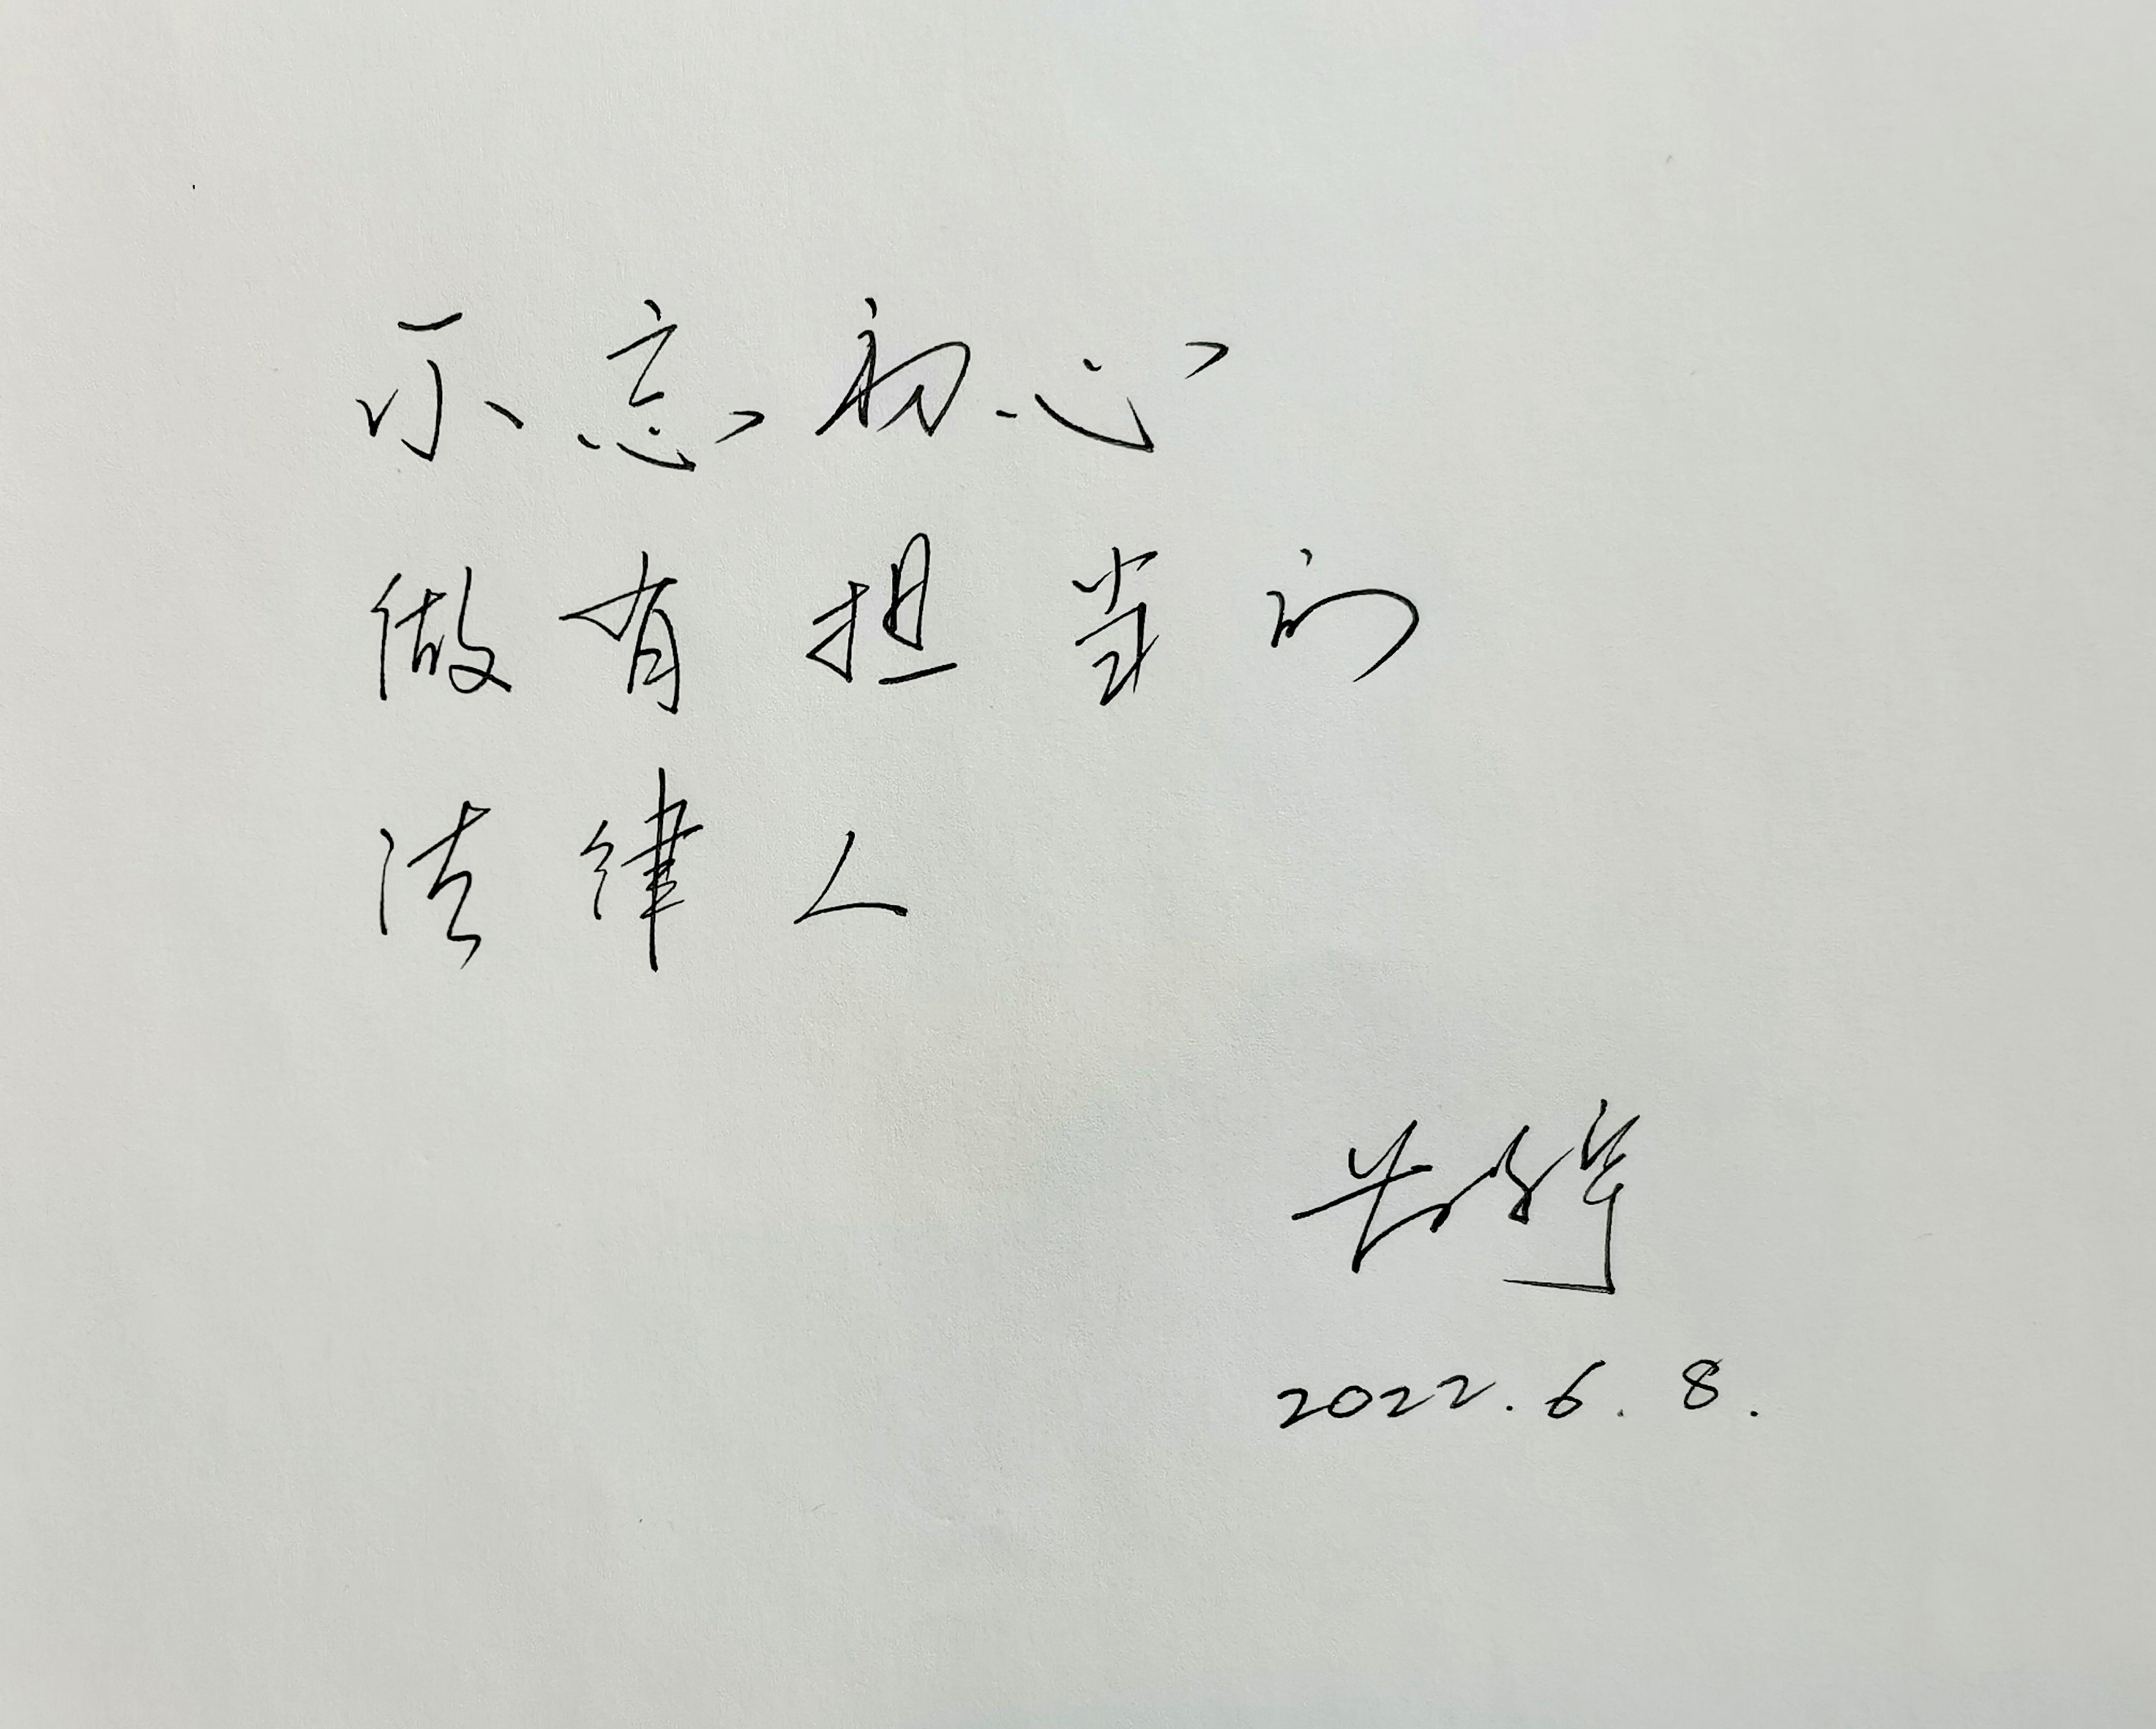 不忘初心
做有担当的
法律人
2022.6.8.